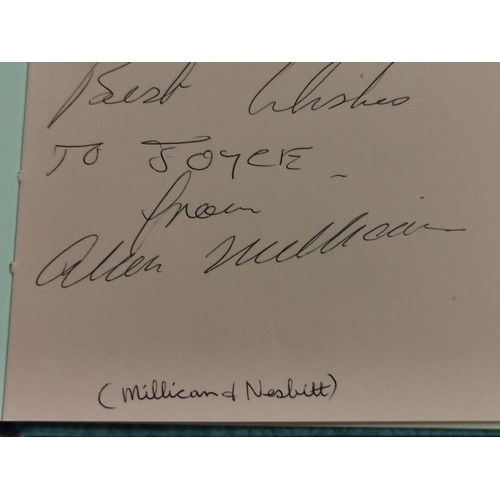 Best Wishes
TO JOYCE
from
Alan Millican
(Millican & Nesbitt)